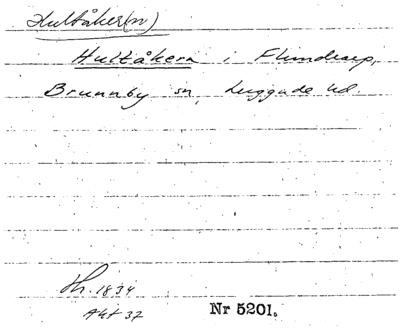 Hultåker(n)
Hultåkern i Flundrarp,
Brunnby sn, Luggude hd
Hh. 1834
Akt 37
Nr 5201.